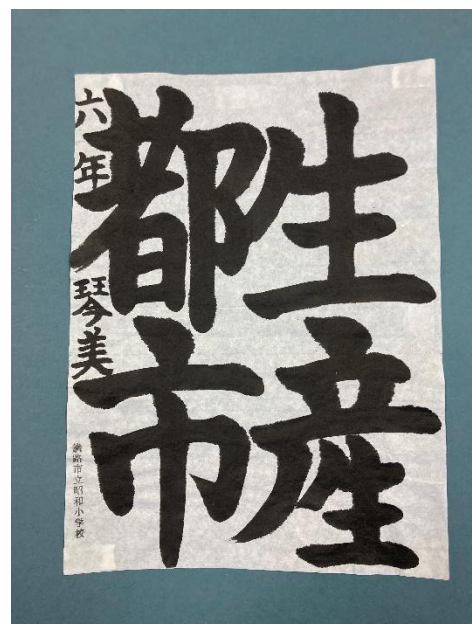 生産
都市
六年 琴美
釧路市立昭和小学校